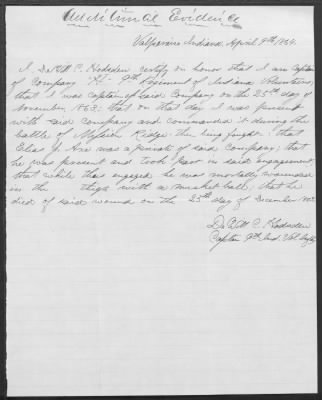 Additional Evidence
Valparaiso Indiana. April 9th 1864.
I, DeWitt C. Hodsden certify on honor that I am Captain
of Company "H" 9th Regiment of Indiana Volunteers,
that I was Captain of said Company on the 25th day of
November, 1863; that on that day I was present
with said Company and commanded it during the
battle of Mission Ridge, then being fought; that
Elias J. was a private of said Company; that
he was present and took part in said engagement,
that while thus engaged he was mortally wounded
in the thigh with a musket ball; that he
died of said wound on the 25th day of December 1863.
DeWitt C. Hodsden
Captain 9th Ind. Vol. Infty